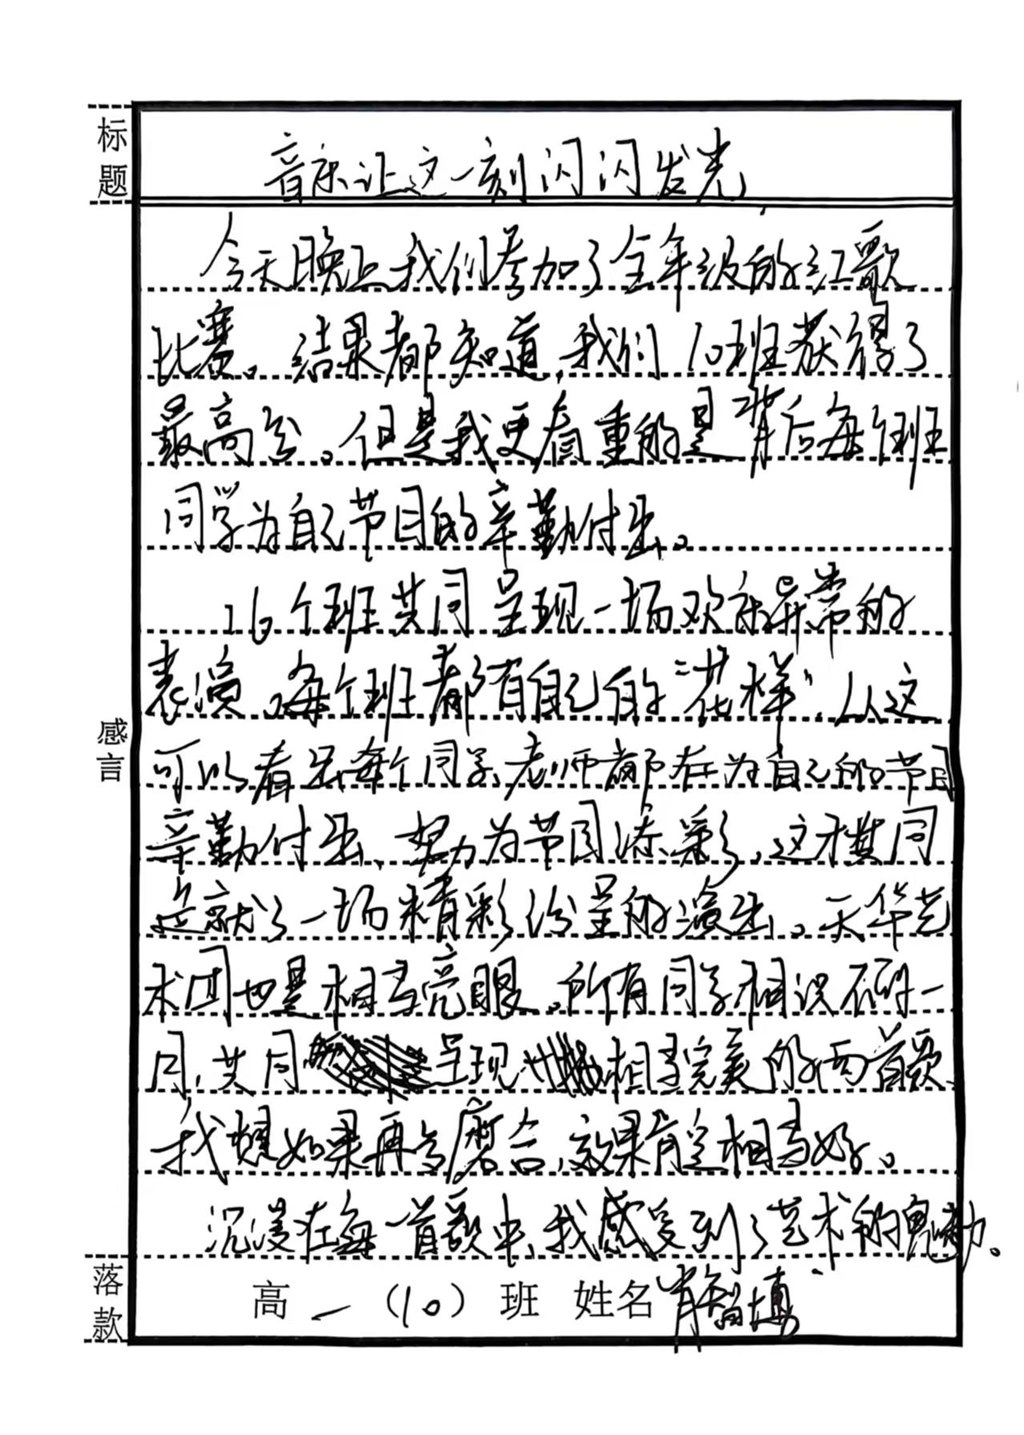 标题
音乐让这一刻闪闪发光
今天晚上我们参加了全年级的红歌
比赛。结果都知道,我们10班获得了
最高分。但是我更看重的是背后每个班
同学为自己节目的辛勤付出。
16个班共同呈现一场欢乐异常的
表演。每个班都有自己的“花样”,从这
可以看出每个同学、老师都在为自己的节目
辛勤付出、努力为节目添彩,这才共同
造就了一场精彩纷呈的演出。天华艺
术团也是相当亮眼。所有同学相识不到一
月,共同呈现相当完美的两首歌。
我想如果再多磨合,效果肯定相当好。
沉浸在每一首歌中,我感受到了艺术的魅力。
感言
落款
高一(10)班 姓名 肖智